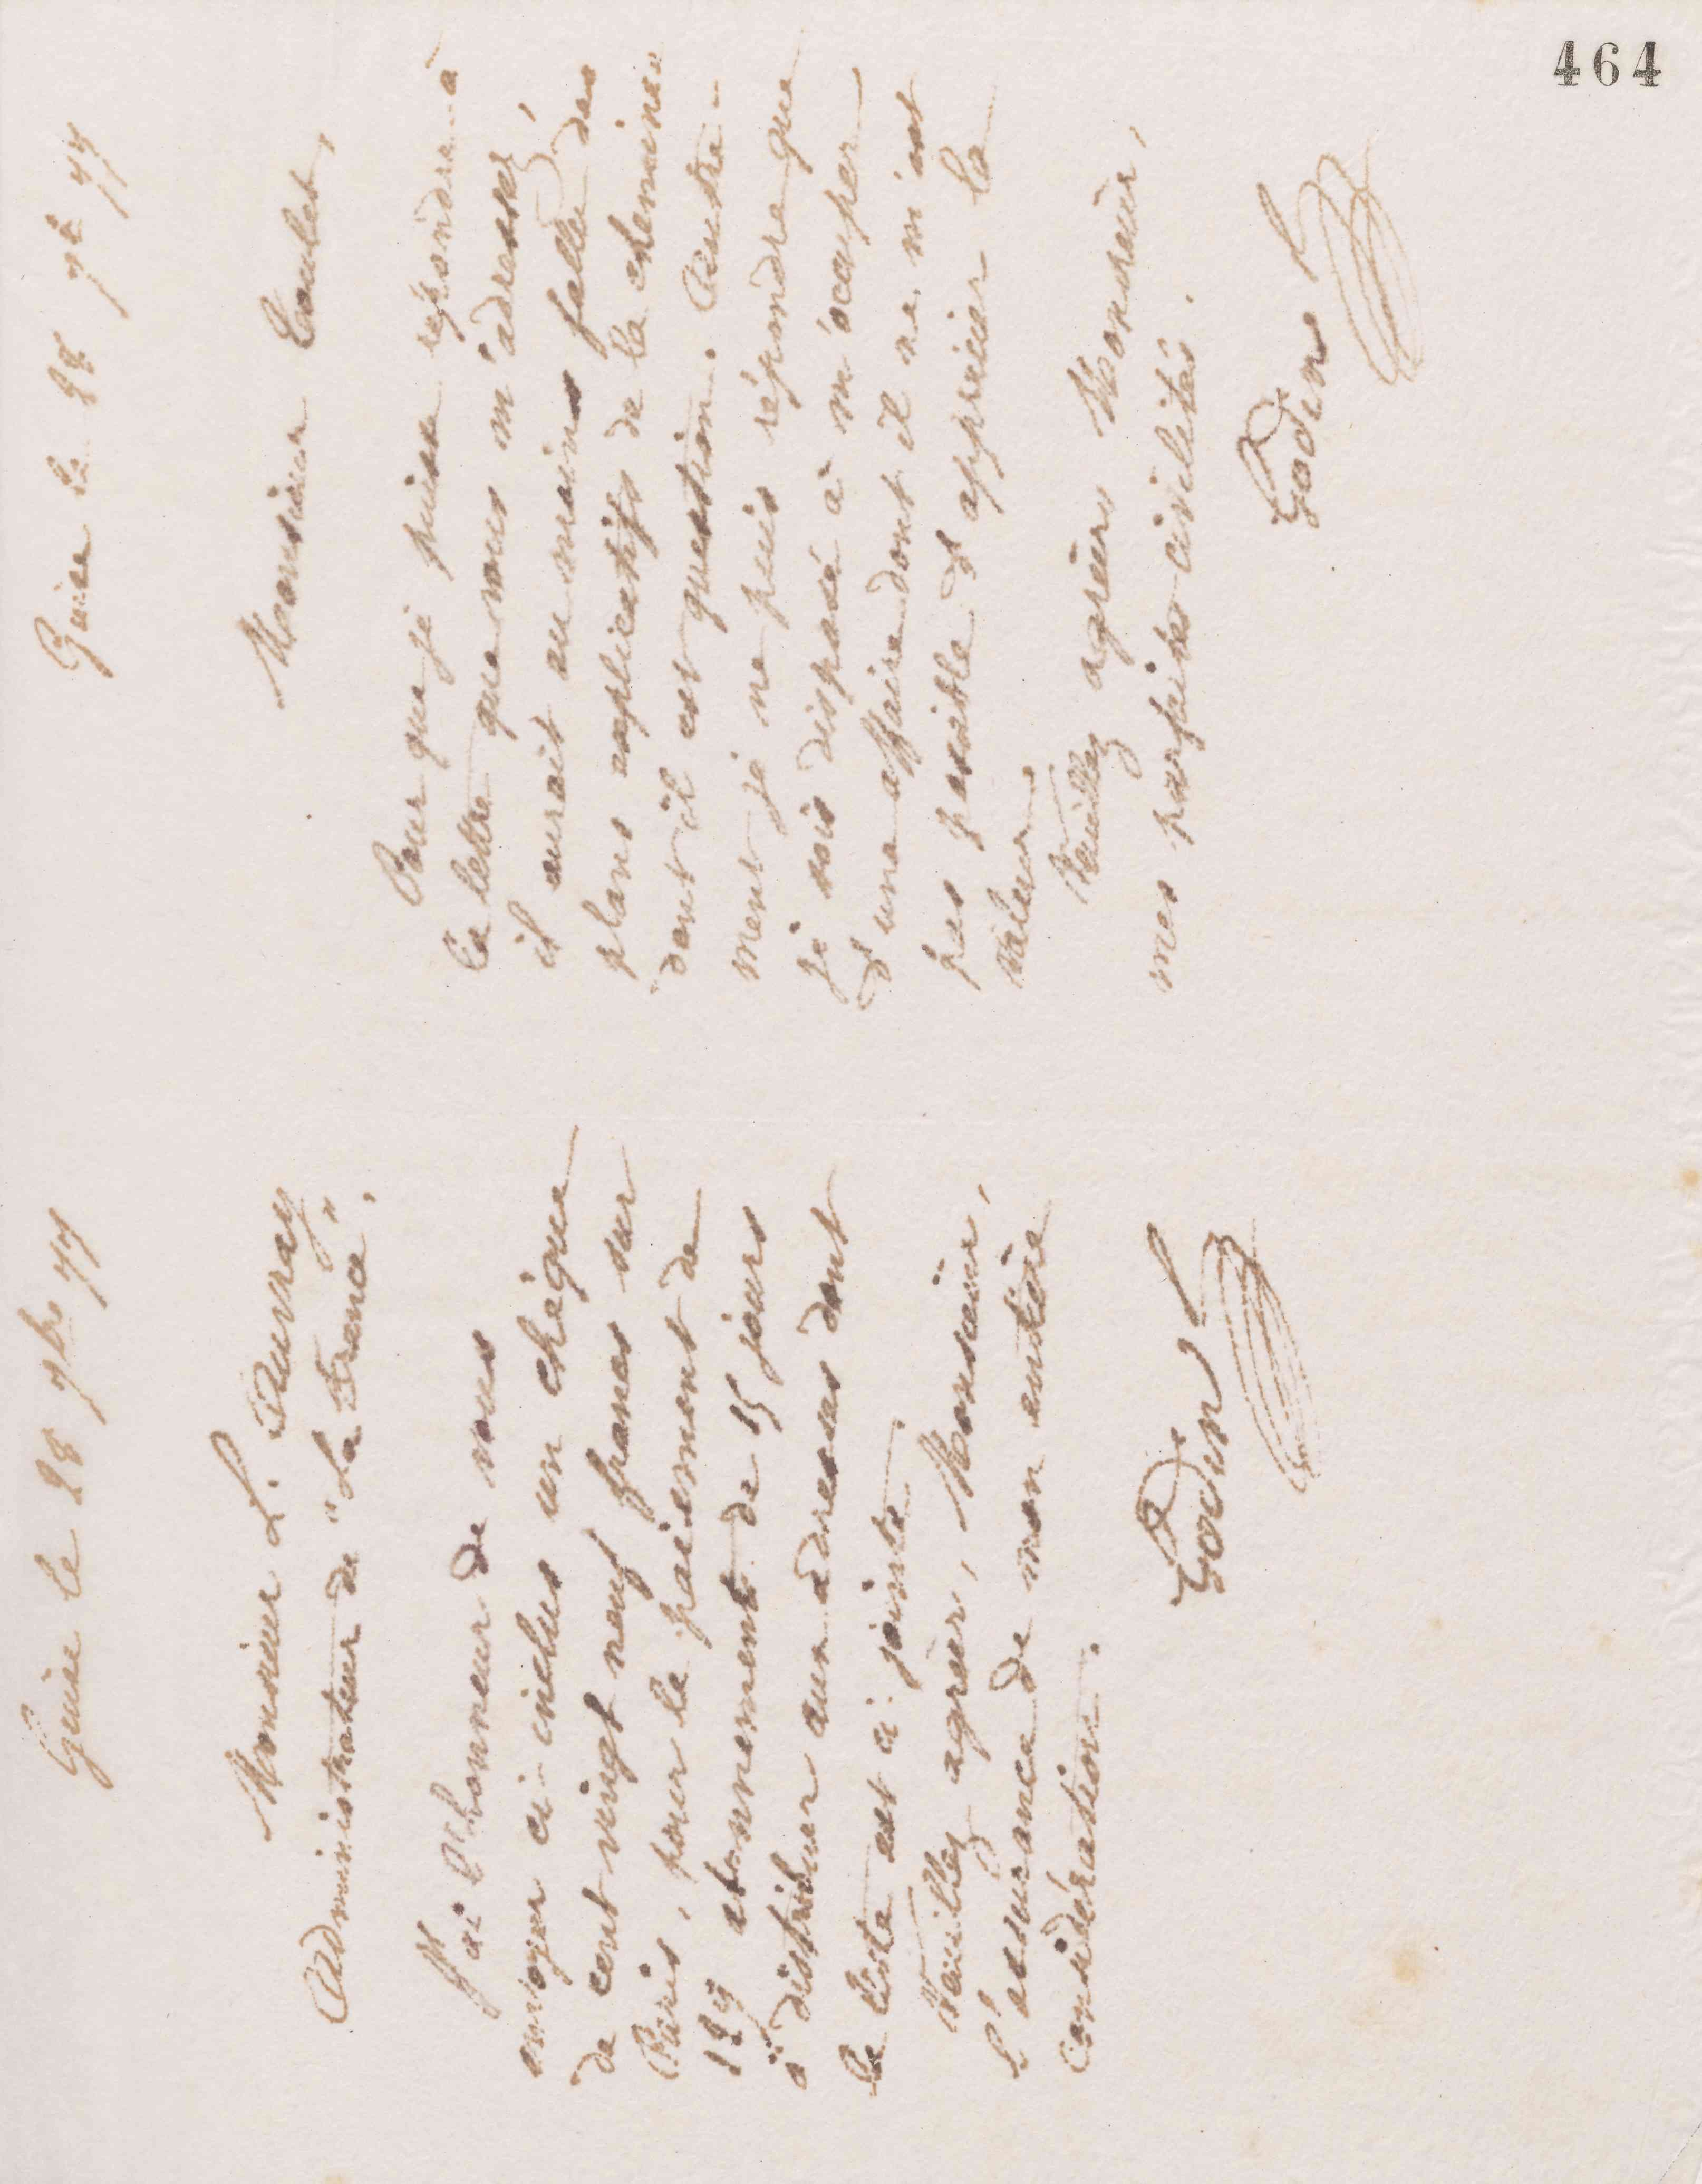 464
Guise le 28 7bre 77
Monsieur L. Duvray
Administrateur de "La France",
J'ai l'honneur de vous
envoyer ci-inclus un chèque
de cent vingt neuf francs sur
Paris, pour le paiement de
129 abonnements de 15 jours
à distribuer aux adresses dont
la liste est ci jointe.
Veuillez agréer, Monsieur,
l'assurance de mon entière
considération.
Godin
Guise le 28 7b 77
Monsieur
Pour que je puisse répondre à
la lettre que vous m'adressez,
il aurait au moins fallu des
plans explicatifs de la cheminée
dont il est question. Autre-
ment je ne puis répondre que
je sois disposé à m'occuper
d'une affaire dont il ne m'est
pas possible d'apprécier la
valeur.
Veuillez agréer Monsieur,
mes parfaites civilités.
Godin